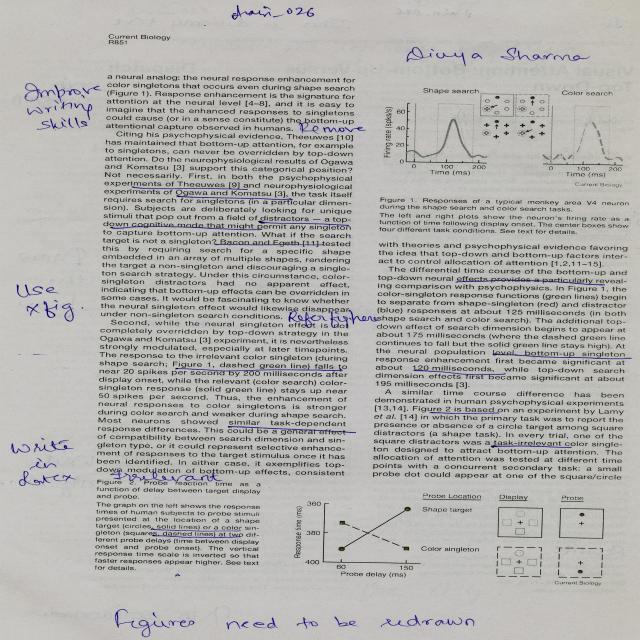 Current Biology
R851
Divya Sharma
Improve
writing
skills
a neural analog: the neural response enhancement for
color singletons that occurs even during shape search
(Figure 1). Response enhancement is the signature for
attention at the neural level [4–8], and it is easy to
imagine that the enhanced responses to singletons
could cause (or in a sense constitute) the bottom-up
attentional capture observed in humans. Remove
Citing his psychophysical evidence, Theeuwes [10]
has maintained that bottom-up attention, for example
to singletons, can never be overridden by top-down
attention. Do the neurophysiological results of Ogawa
and Komatsu [3] support this categorical position?
Not necessarily. First, in both the psychophysical
experiments of Theeuwes [9] and neurophysiological
experiments of Ogawa and Komatsu [3], the task itself
requires search for singletons (in a particular dimen-
sion). Subjects are deliberately looking for unique
stimuli that pop out from a field of distractors — a top-
down cognitive mode that might permit any singleton
to capture bottom-up attention. What if the search
target is not a singleton? Bacon and Egeth [11] tested
this by requiring search for a specific shape
embedded in an array of multiple shapes, rendering
the target a non-singleton and discouraging a single-
ton search strategy. Under this circumstance, color-
singleton distractors had no apparent effect,
indicating that bottom-up effects can be overridden in
some cases. It would be fascinating to know whether
the neural singleton effect would likewise disappear
under non-singleton search conditions.
Use
xfig.
Second, while the neural singleton effect is not
completely overridden by top-down strategy in the
Ogawa and Komatsu [3] experiment, it is nevertheless
strongly modulated, especially at later timepoints.
The response to the irrelevant color singleton (during
shape search; Figure 1, dashed green line) falls to
near 20 spikes per second by 200 milliseconds after
display onset, while the relevant (color search) color-
singleton response (solid green line) stays up near
50 spikes per second. Thus, the enhancement of
neural responses to color singletons is stronger
during color search and weaker during shape search.
Most neurons showed similar task-dependent
response differences. This could be a general effect
of compatibility between search dimension and sin-
gleton type, or it could represent selective enhance-
ment of responses to the target stimulus once it has
been identified. In either case, it exemplifies top-
down modulation of bottom-up effects, consistent
Write
in
Latex
Irrelevant
Shape search
Color search
Firing rate (spks/s)
60
40
20
0
0 100 200
Time (ms)
0 100 200
Time (ms)
Current Biology
Figure 1. Responses of a typical monkey area V4 neuron
during the shape search and color search tasks.
The left and right plots show the neuron's firing rate as a
function of time following display onset. The center boxes show
four different task conditions. See text for details.
with theories and psychophysical evidence favoring
the idea that top-down and bottom-up factors inter-
act to control allocation of attention [1,2,11–15].
The differential time course of the bottom-up and
top-down neural effects provides a particularly reveal-
ing comparison with psychophysics. In Figure 1, the
color-singleton response functions (green lines) begin
to separate from shape-singleton (red) and distractor
(blue) responses at about 125 milliseconds (in both
shape search and color search). The additional top-
down effect of search dimension begins to appear at
about 175 milliseconds (where the dashed green line
continues to fall but the solid green line stays high). At
the neural population level, bottom-up singleton
response enhancement first became significant at
about 120 milliseconds, while top-down search
dimension effects first became significant at about
195 milliseconds [3].
A similar time course difference has been
demonstrated in human psychophysical experiments
[13,14]. Figure 2 is based on an experiment by Lamy
et al. [14] in which the primary task was to report the
presence or absence of a circle target among square
distractors (a shape task). In every trial, one of the
square distractors was a task-irrelevant color single-
ton designed to attract bottom-up attention. The
allocation of attention was tested at different time
points with a concurrent secondary task: a small
probe dot could appear at one of the square/circle
Figure 2. Probe reaction time as a
function of delay between target display
and probe.
The graph on the left shows the response
times of human subjects to probe stimuli
presented at the location of a shape
target (circles, solid lines) or a color sin-
gleton (squares, dashed lines) at two dif-
ferent probe delays (time between display
onset and probe onset). The vertical
response time scale is inverted so that
faster responses appear higher. See text
for details.
Response time (ms)
360
380
400
60 150
Probe delay (ms)
Probe Location
Shape target
Color singleton
Display
Probe
Current Biology
Figures need to be redrawn